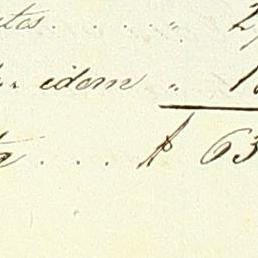 tas . . . . " 2
idem " 1
ta . . . . $ 63